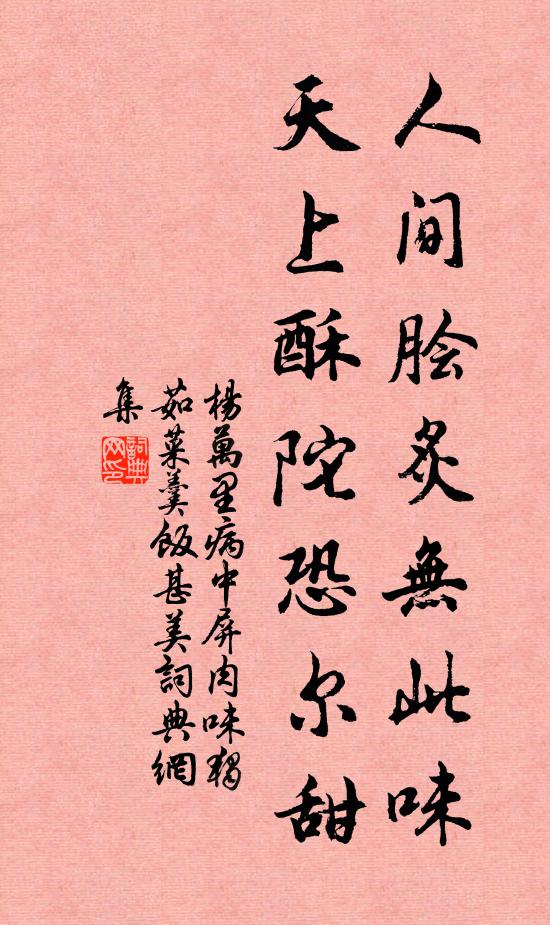 人间脍炙無此味
天上酥陀恐尔甜
楊萬里病中屏肉味獨
茹菜羹飯甚美詞典網
集
詞典
网印